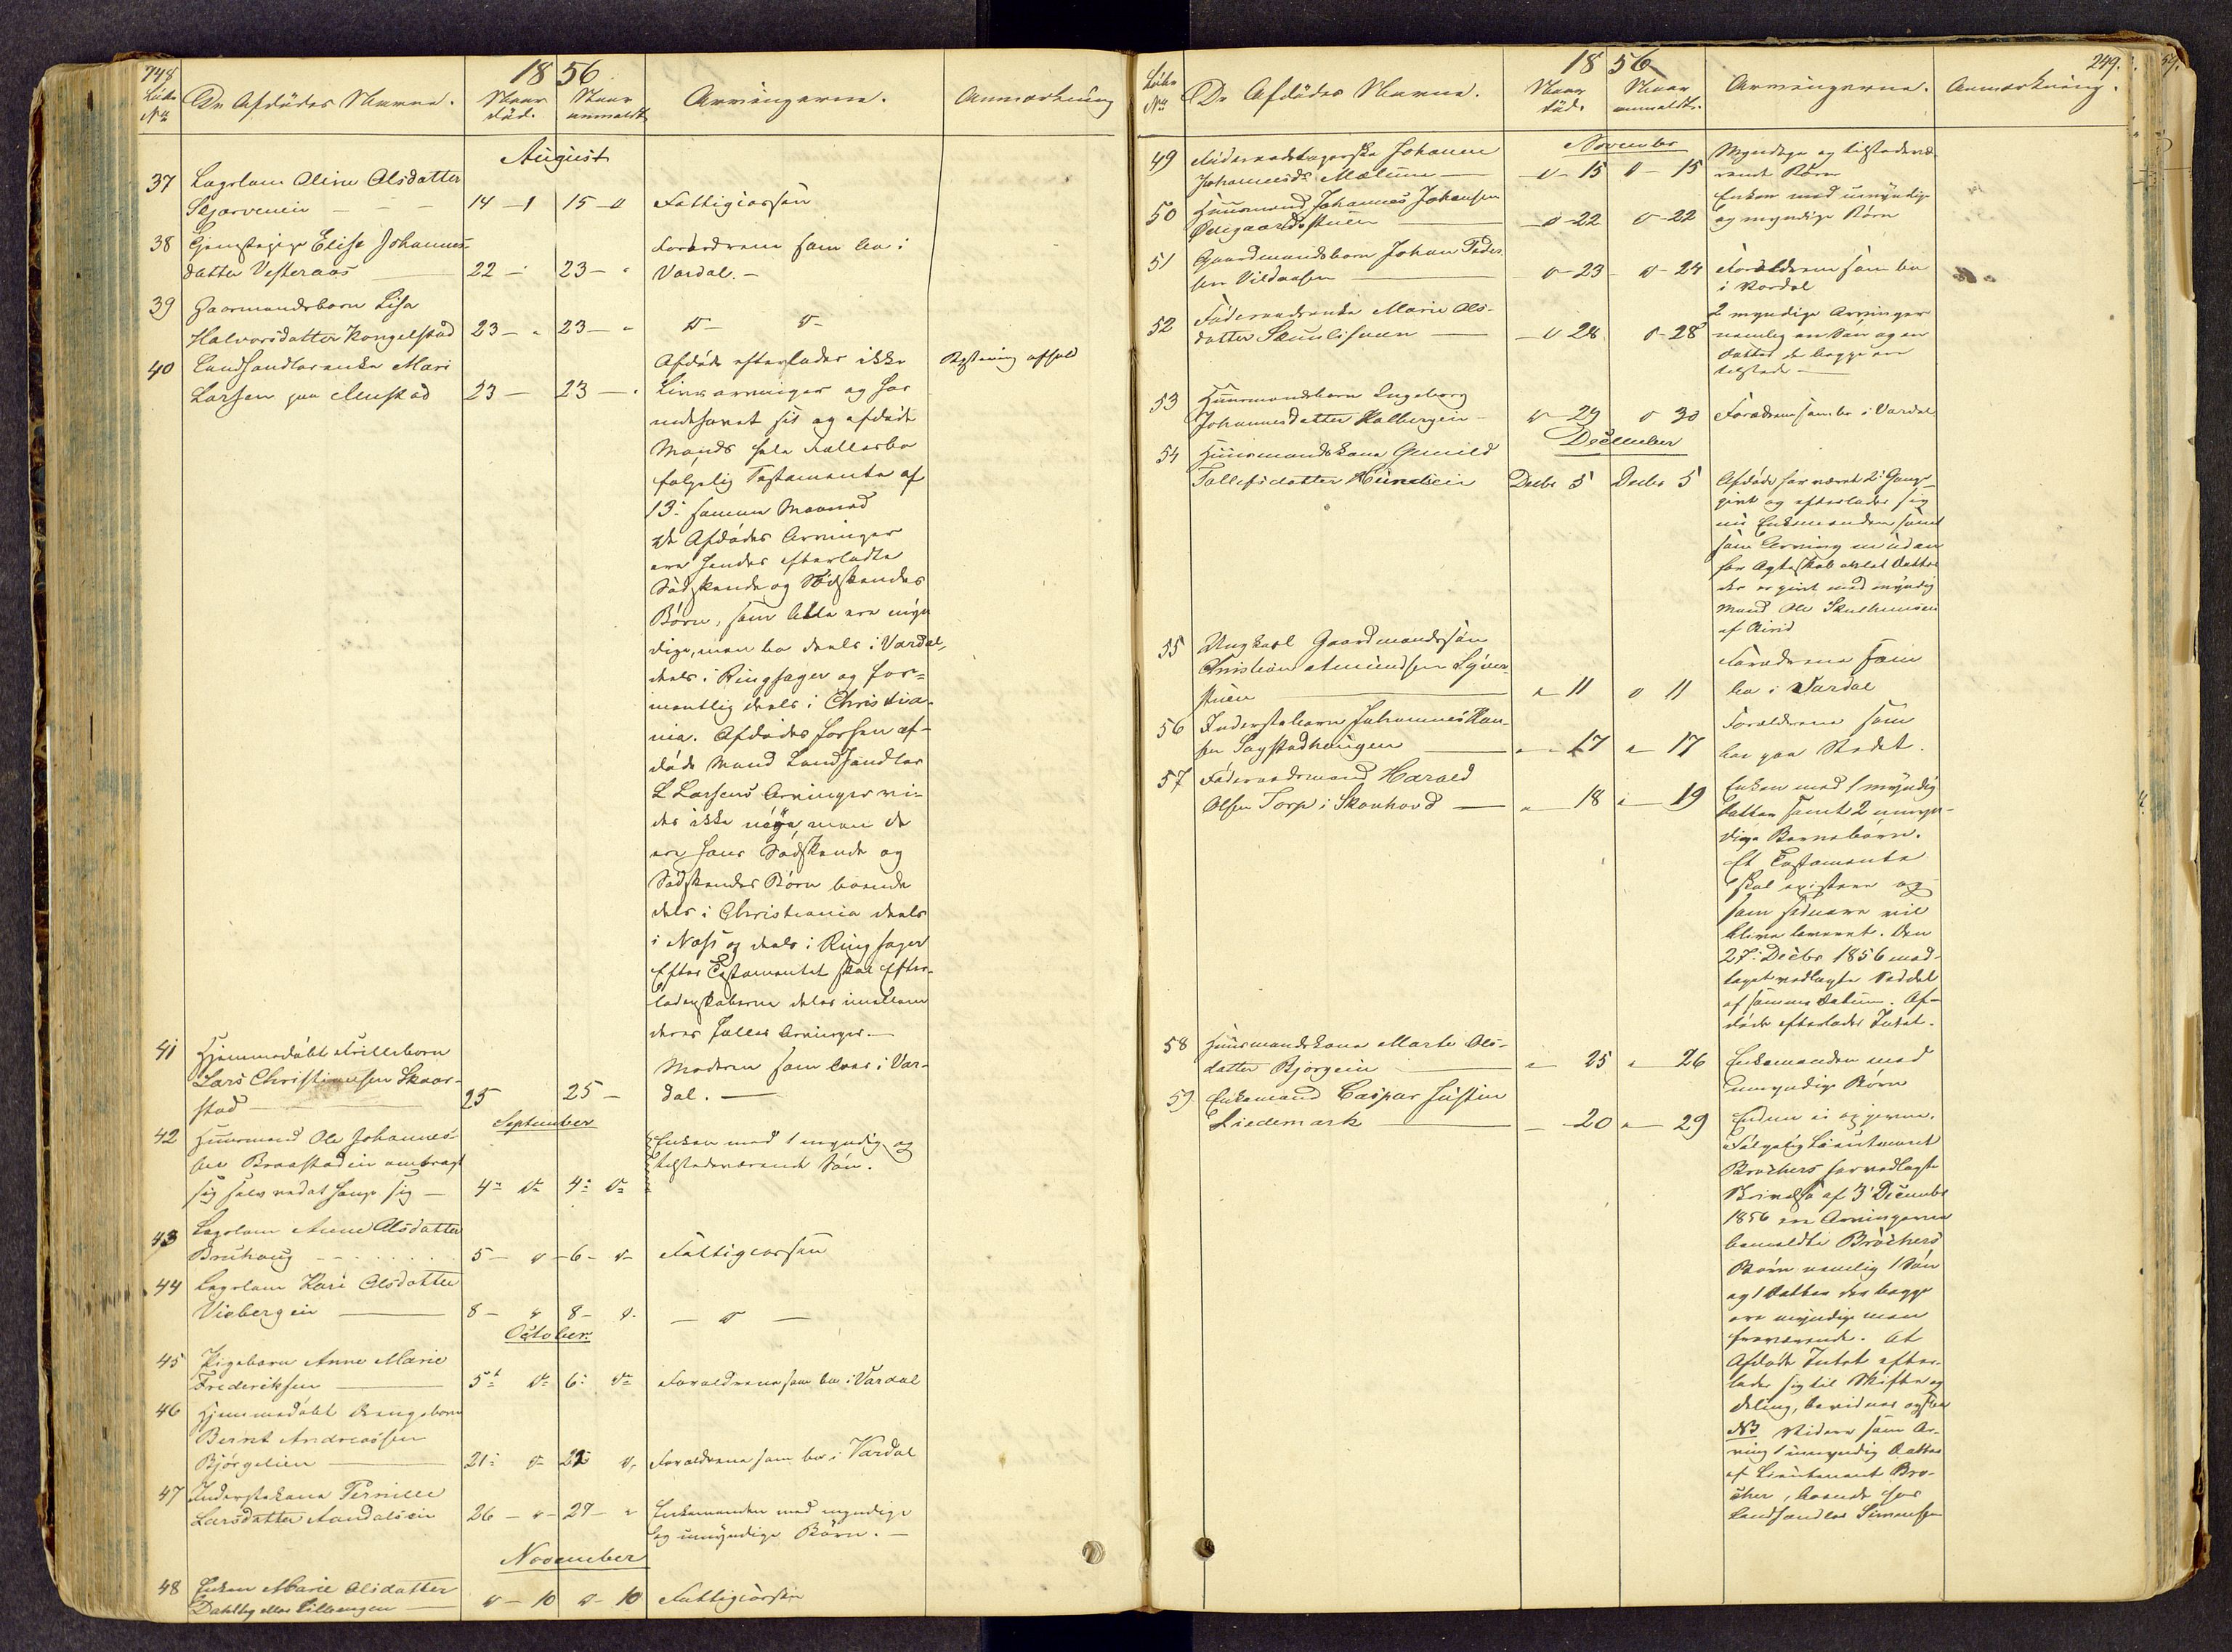 748
1856
Løbe No
De Afdødes Navne.
Naar død.
Naar anmeldt
Arvingerne.
Anmærkning
August
37 Lægslem Oline Olsdatter
Skjærveneie 14 – 15 – Fattigcassen
38 Gjenstepige Elise Johannes-
datter Vesteraas 22 – 23 –
Forældrene som bo i
Vardal. –
39 Gaarmandsbarn Lisa
Halvorsdatter Kongelstad 23 – 23 – D– D–
40 Landhandlerenke Mari
Larsen paa Mustad 23 – 23 –
Afdøde efterlader ikke
Livsarvinger og har
indehavet sit og afdøde
Mands hele Fællesbo
følgelig Testamente af
13: samme Maaned
De Afdødes Arvinger
ere hendes efterladte
Sødskende og Sødskendes
Børn, som Alle ere myn
dige, men bo deels i Vardal,
deels i Ringsager og for-
mentlig deels i Christia-
nia. Afdødes forhen af-
døde Mand Landhandler
L Larsens Arvinger vi-
des ikke nøye, men de
ere hans Sødskende og
Sødskendes Børn boende
dels i Christiania deels
i Næss og deels i Ringsager
Efter Testamentet skal Efter-
ladenskaberne deles imellem
deres fælles Arvinger. –
41 Hjemmedøbt Frilleborn
Lars Christiansen Skaar-
stad 25 25 –
Moderen som boer i Var-
dal. –
September
42 Huusmand Ole Johannes-
sen Braastadeie ombragt
sig selv ved at hænge sig – 4– D– 4– D–
Enken med 1 myndig og
tilstedeværende Søn.
43 Lægslem Anne Olsdatter
Bruhaug 5 – D – 6 – D– Fattigcassen
44 Lægslem Kari Olsdatter
Viebergeie 8 – 8 – – D –
October
45 Pigebarn Anne Marie
Frederiksen 5t D– 6: D– Forældrene som bo i Vardal
46 Hjemmedøbt Drengebarn
Bernt Andreassen
Bjørgelien 21: D– 22 D, Forældrene som bo i Vardal
47 Inderstekone Pernille
Larsdatter Aandalseie 26 – D– 27 –
Enkemanden med myndige
og umyndige Børn. –
November
48 Enken Marie Olsdatter
Dahlby eller Lillrengen D – 10 D – 10 Fattigcassen
1856
249.
Løbe No
De Afdødes Navne.
Naar død.
Naar anmeldt.
Arvingerne.
Anmærkning.
November
49 Føderaadstagerske Johanne
Johannesdr Mælum – D – 15 D – 15
Myndige og tilstedevæ-
rende Børn
50 Huusmand Johannes Johansen
Ødegaardsstuen – D – 22 D – 22
Enken med umyndige
og myndige Børn
51 Gaardmandsbarn Johan Peder
sen Vildaasen D – 23 – D – 24
Forældrene som bo
i Vardal
52 Føderaadsenke Marie Ols-
datter Skunlistuen – D 28 D – 28
2 myndige Arvinger
nemlig en Søn og en
Datter de begge ere
tilstede –
53 Huusmandsbarn Ingeborg
Johannesdatter Kolbergeie D – 29 D 30 Forældrene som bo i Vardal
December
54 Huusmandskone Gunild
Tollefsdatter Hundseie Decbr 5 Decbr 5
Afdøde har været 2: Gange
givt og efterlader sig
nu Enkemanden samt
som Arving en uden
for Ægteskab avlet Datter
der er givt med myndig
Mand Ole Skulhusseie
af Birid
55 Ungkarl Gaardmandssøn
Christian Amundsen Lyner
stuen 11 D 11
Forældrene som
bo i Vardal
56 Inderstebarn Johannes Han
sen Sagstadhaugen 17 17
Forældrene som
bor paa Stedet.
57 Føderaadsmand Harald
Olsen Torp i Skonhovd – 18 – 19
Enken med 1 myndig
Datter samt 2 umyn-
dige Børnebørn.
Et Testamente
skal existere og
som sednere vil
blive leveret. Den
27: Decbr 1856 mod-
taget vedlagte Seddel
af samme Datum. Af-
døde efterlader Intet.
58 Huusmandskone Marte Ols-
datter Bjørgeie – 25 – 26
Enkemanden med
umyndige Børn
59 Enkemand Caspar Justin
Liedemark – 20 – 29
Endnu ei opgivne.
Følgelig Lieutenant
Brøchers her vedlagte
Skrivelse af 3' December
1856 ere Arvingerne
bemeldte Brøchers
Børn nemlig 1 Søn
og 1 Datter der begge
ere myndige men
fraværende. At
Afdøde Intet efter-
lader sig til Skifte og
deling, bevidnes ogsaa
NB Videre som Ar-
ving 1 umyndig Datter
af Lieutenant Brø-
cher, boende hos
Landhandler Simensen